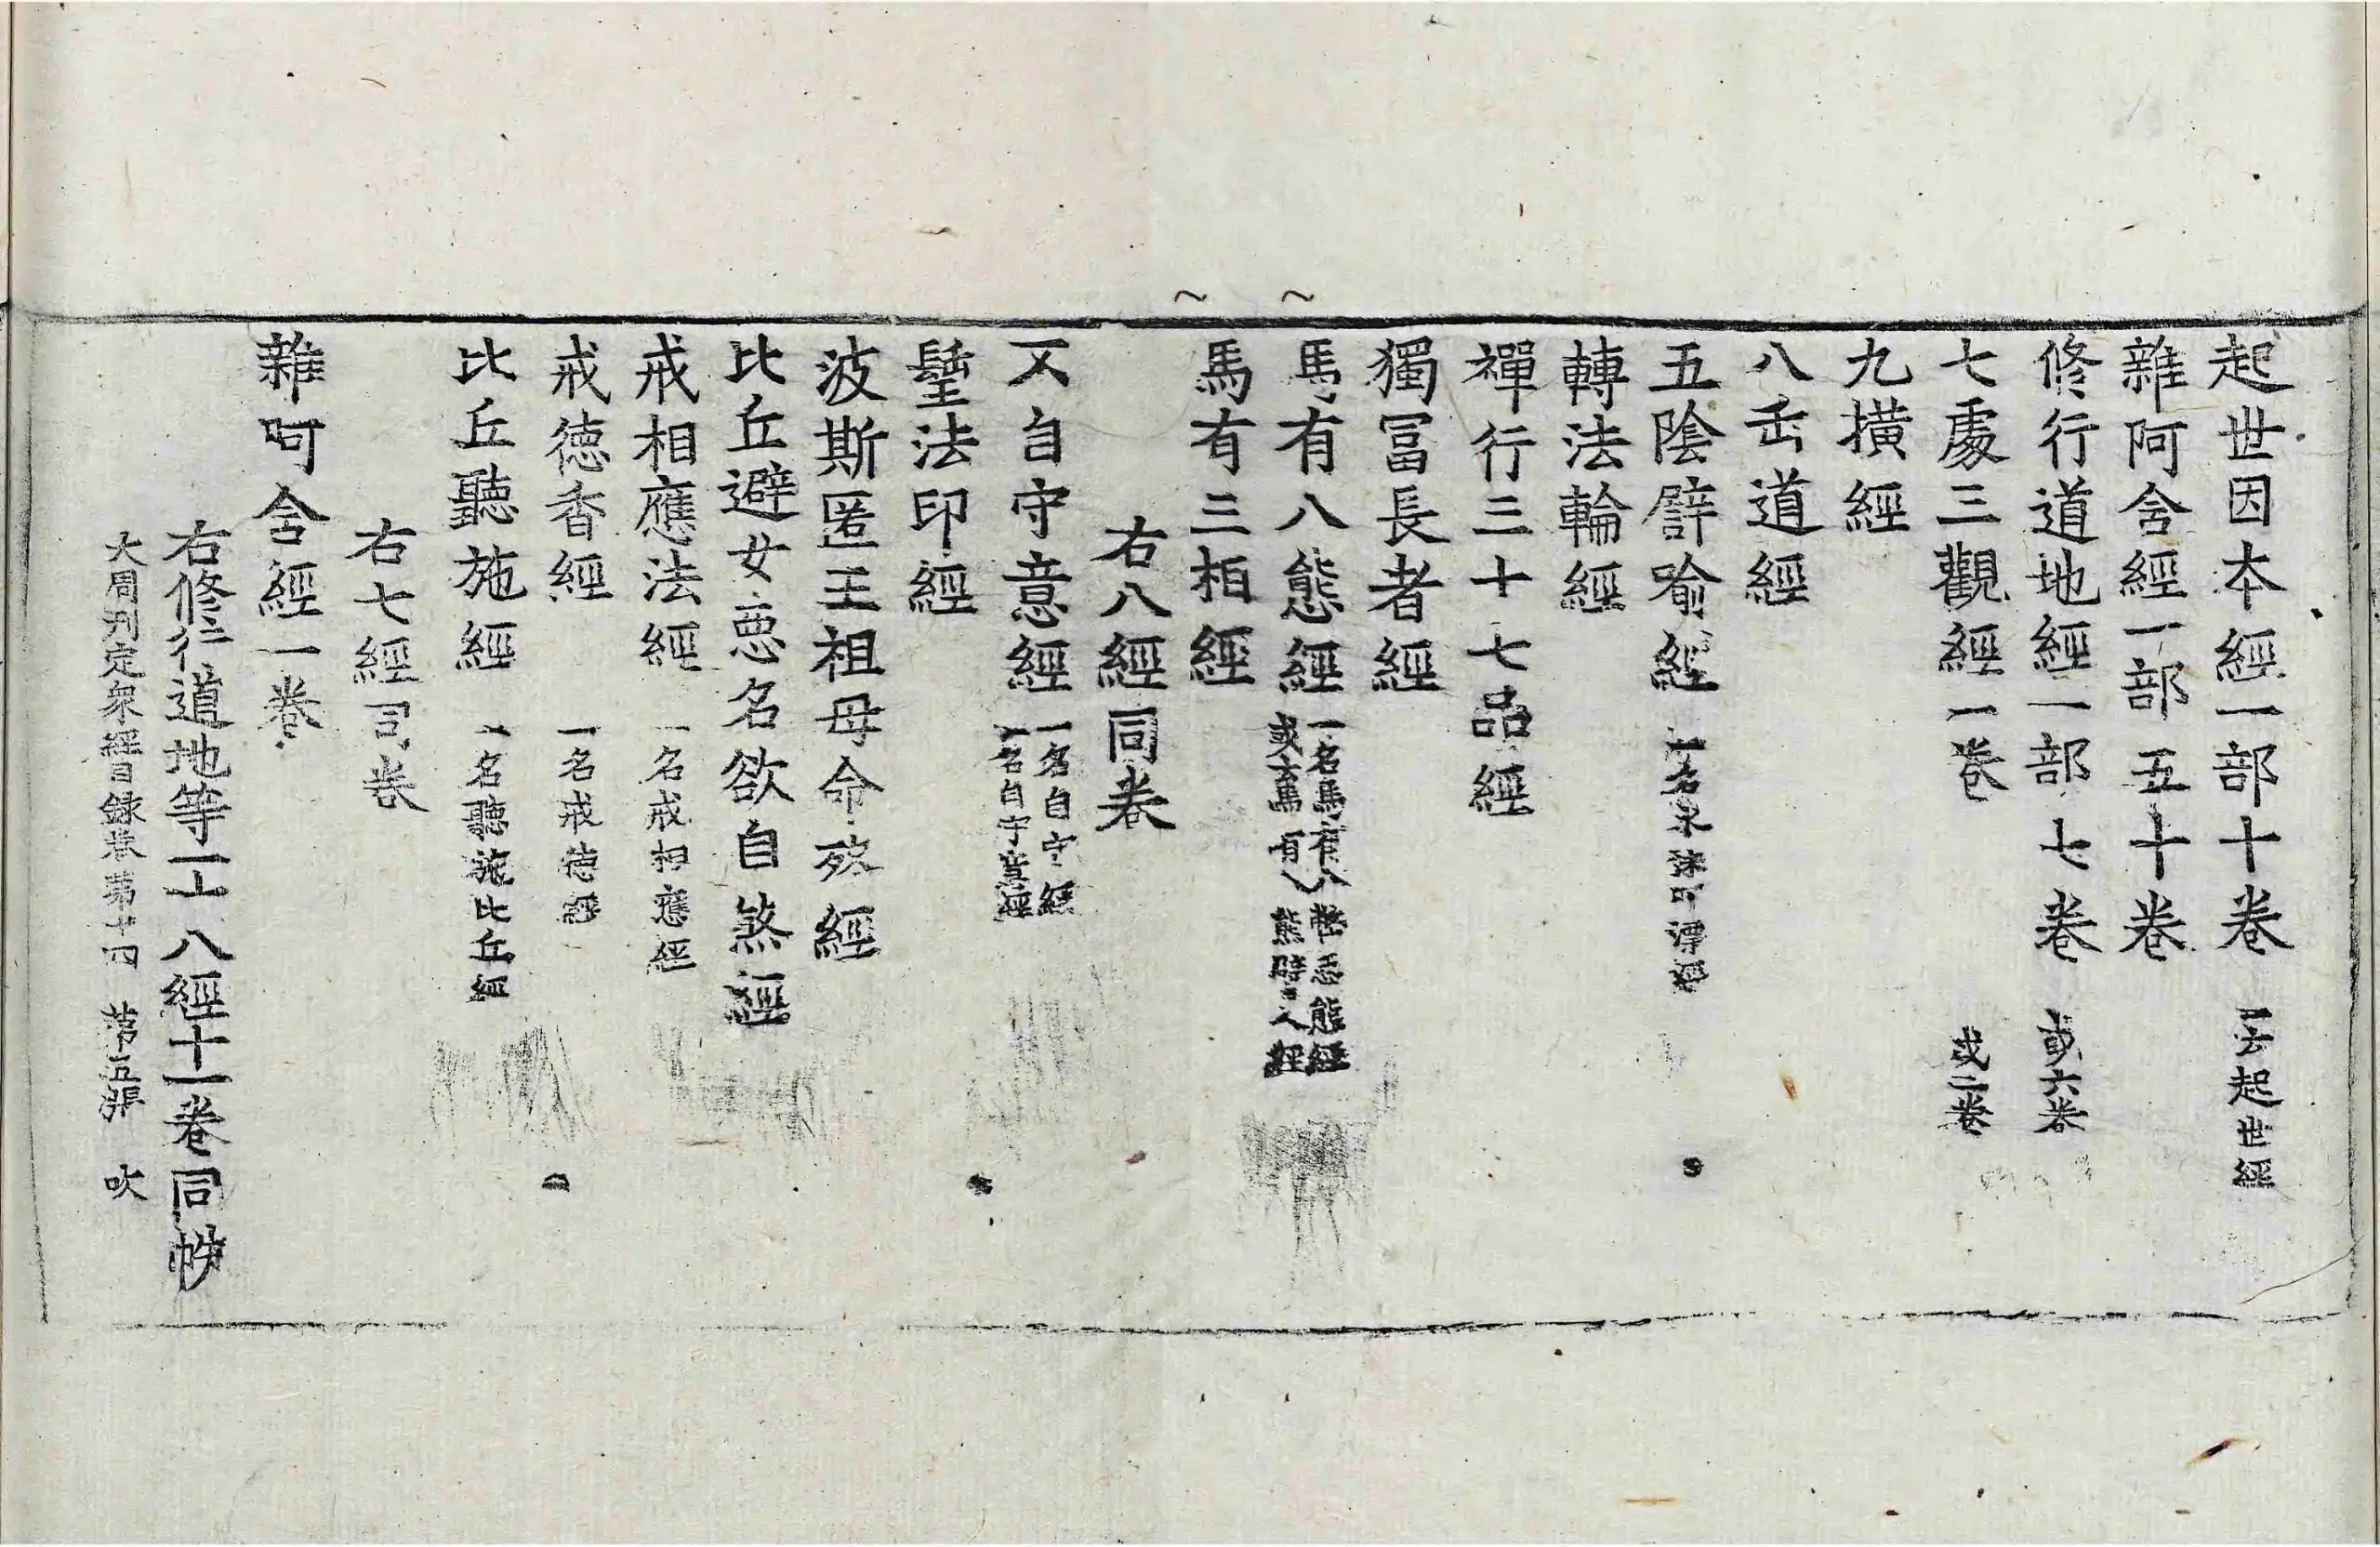 起世因本經一部十卷 一云起世經
雜阿含經一部五十卷
修行道地經一部七卷 或六卷
七處三觀經一卷 或二卷
九橫經
八𠙽道經
五陰譬喻經 一名水沫所漂經
轉法輪經
禪行三十七品經
獨冨長者經
馬有八態經 一名馬有八弊惡態經
或云馬有八態譬人經
馬有三相經
右八經同卷
不自守意經 一名自守經
一名自守意經
髻法印經
波斯匿王祖母命終經
比丘避女惡名欲自煞經
戒相應法經 一名戒相應經
戒德香經 一名戒德經
比丘聽施經 一名聽施比丘經
右七經同卷
雜呵含經一卷
右修行道地等一十八經十一卷同帙
大周刊定眾經目録卷第十四 第五張 吹